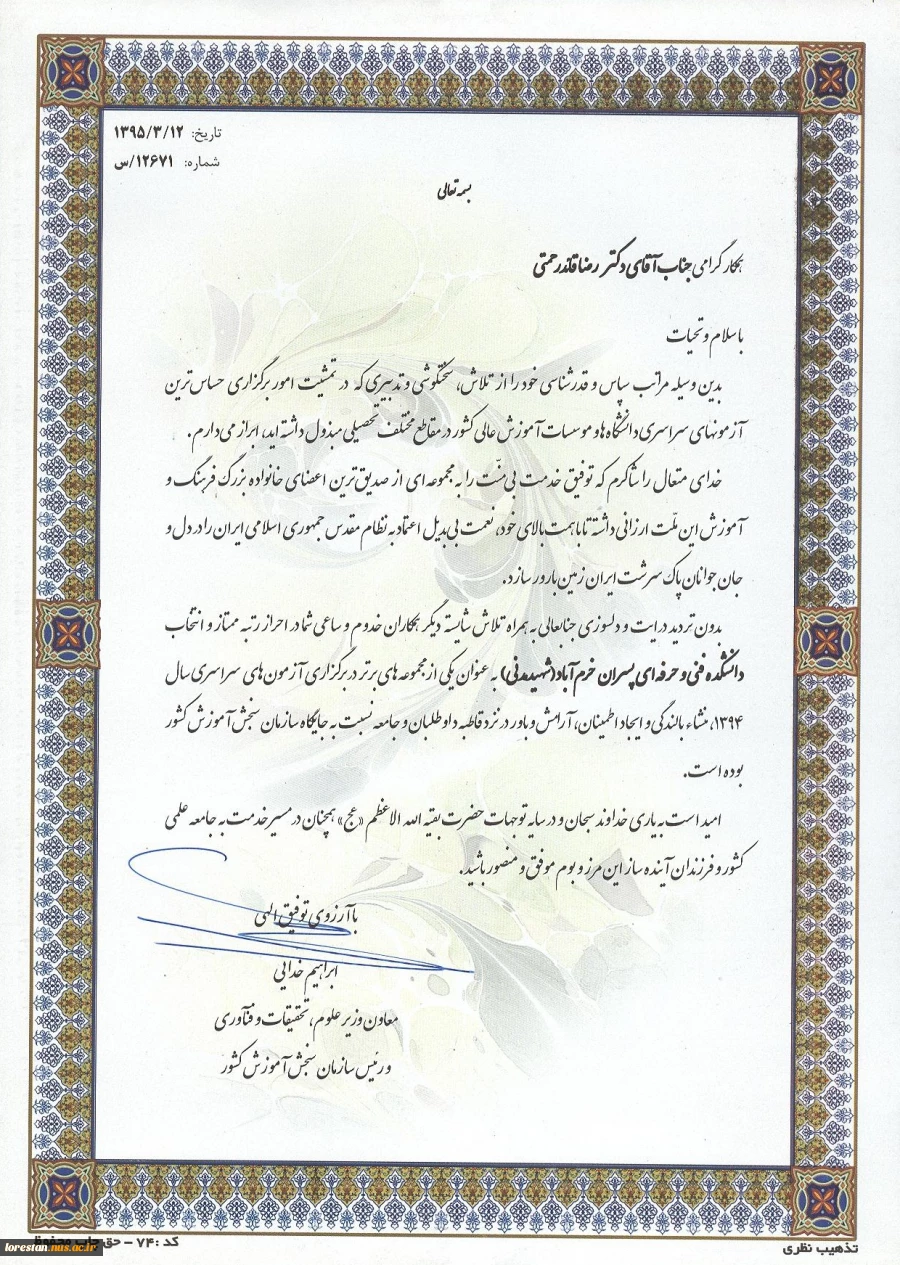 تاریخ: ۱۳۹۵/۳/۱۲
شماره: ۱۲۶۷۱/س
بسمه تعالی
همکار گرامی جناب آقای دکتر رضا قاندرحمتی
با سلام و تحیات
بدین وسیله مراتب سپاس و قدرشناسی خود را از تلاش، سختکوشی و تدبیری که در تمشیت امور برگزاری حساس ترین
آزمونهای سراسری دانشگاه ها و موسسات آموزش عالی کشور در مقاطع مختلف تحصیلی مبذول داشته اید، ابراز می دارم.
خدای متعال را شاکرم که توفیق خدمت بی منّت را به مجموعه ای از صدیق ترین اعضای خانواده بزرگ فرهنگ و
آموزش این ملّت ارزانی داشته تا با همت بالای خود، نعمت بی بدیل اعتماد به نظام مقدس جمهوری اسلامی ایران را در دل و
جان جوانان پاک سرشت ایران زمین بارور سازد.
بدون تردید درایت و دلسوزی جنابعالی به همراه تلاش شایسته دیگر همکاران خدوم و ساعی شما در احراز رتبه ممتاز و انتخاب
دانشکده فنی و حرفه ای پسران خرم آباد (شهیدمدنی) به عنوان یکی از مجموعه های برتر در برگزاری آزمون های سراسری سال
۱۳۹۴، منشاء بالندگی و ایجاد اطمینان، آرامش و باور در نزد قاطبه داوطلبان و جامعه نسبت به جایگاه سازمان سنجش آموزش کشور
بوده است.
امید است به یاری خداوند سبحان و در سایه توجهات حضرت بقیه الله الاعظم «عج» همچنان در مسیر خدمت به جامعه علمی
کشور و فرزندان آینده ساز این مرز و بوم موفق و منصور باشید.
با آرزوی توفیق الهی
ابراهیم خدایی
معاون وزیر علوم، تحقیقات و فنّآوری
و رئیس سازمان سنجش آموزش کشور
تذهیب نظری
کد :۷۴ - حق چاپ محفوظ
lorestan.nus.ac.ir